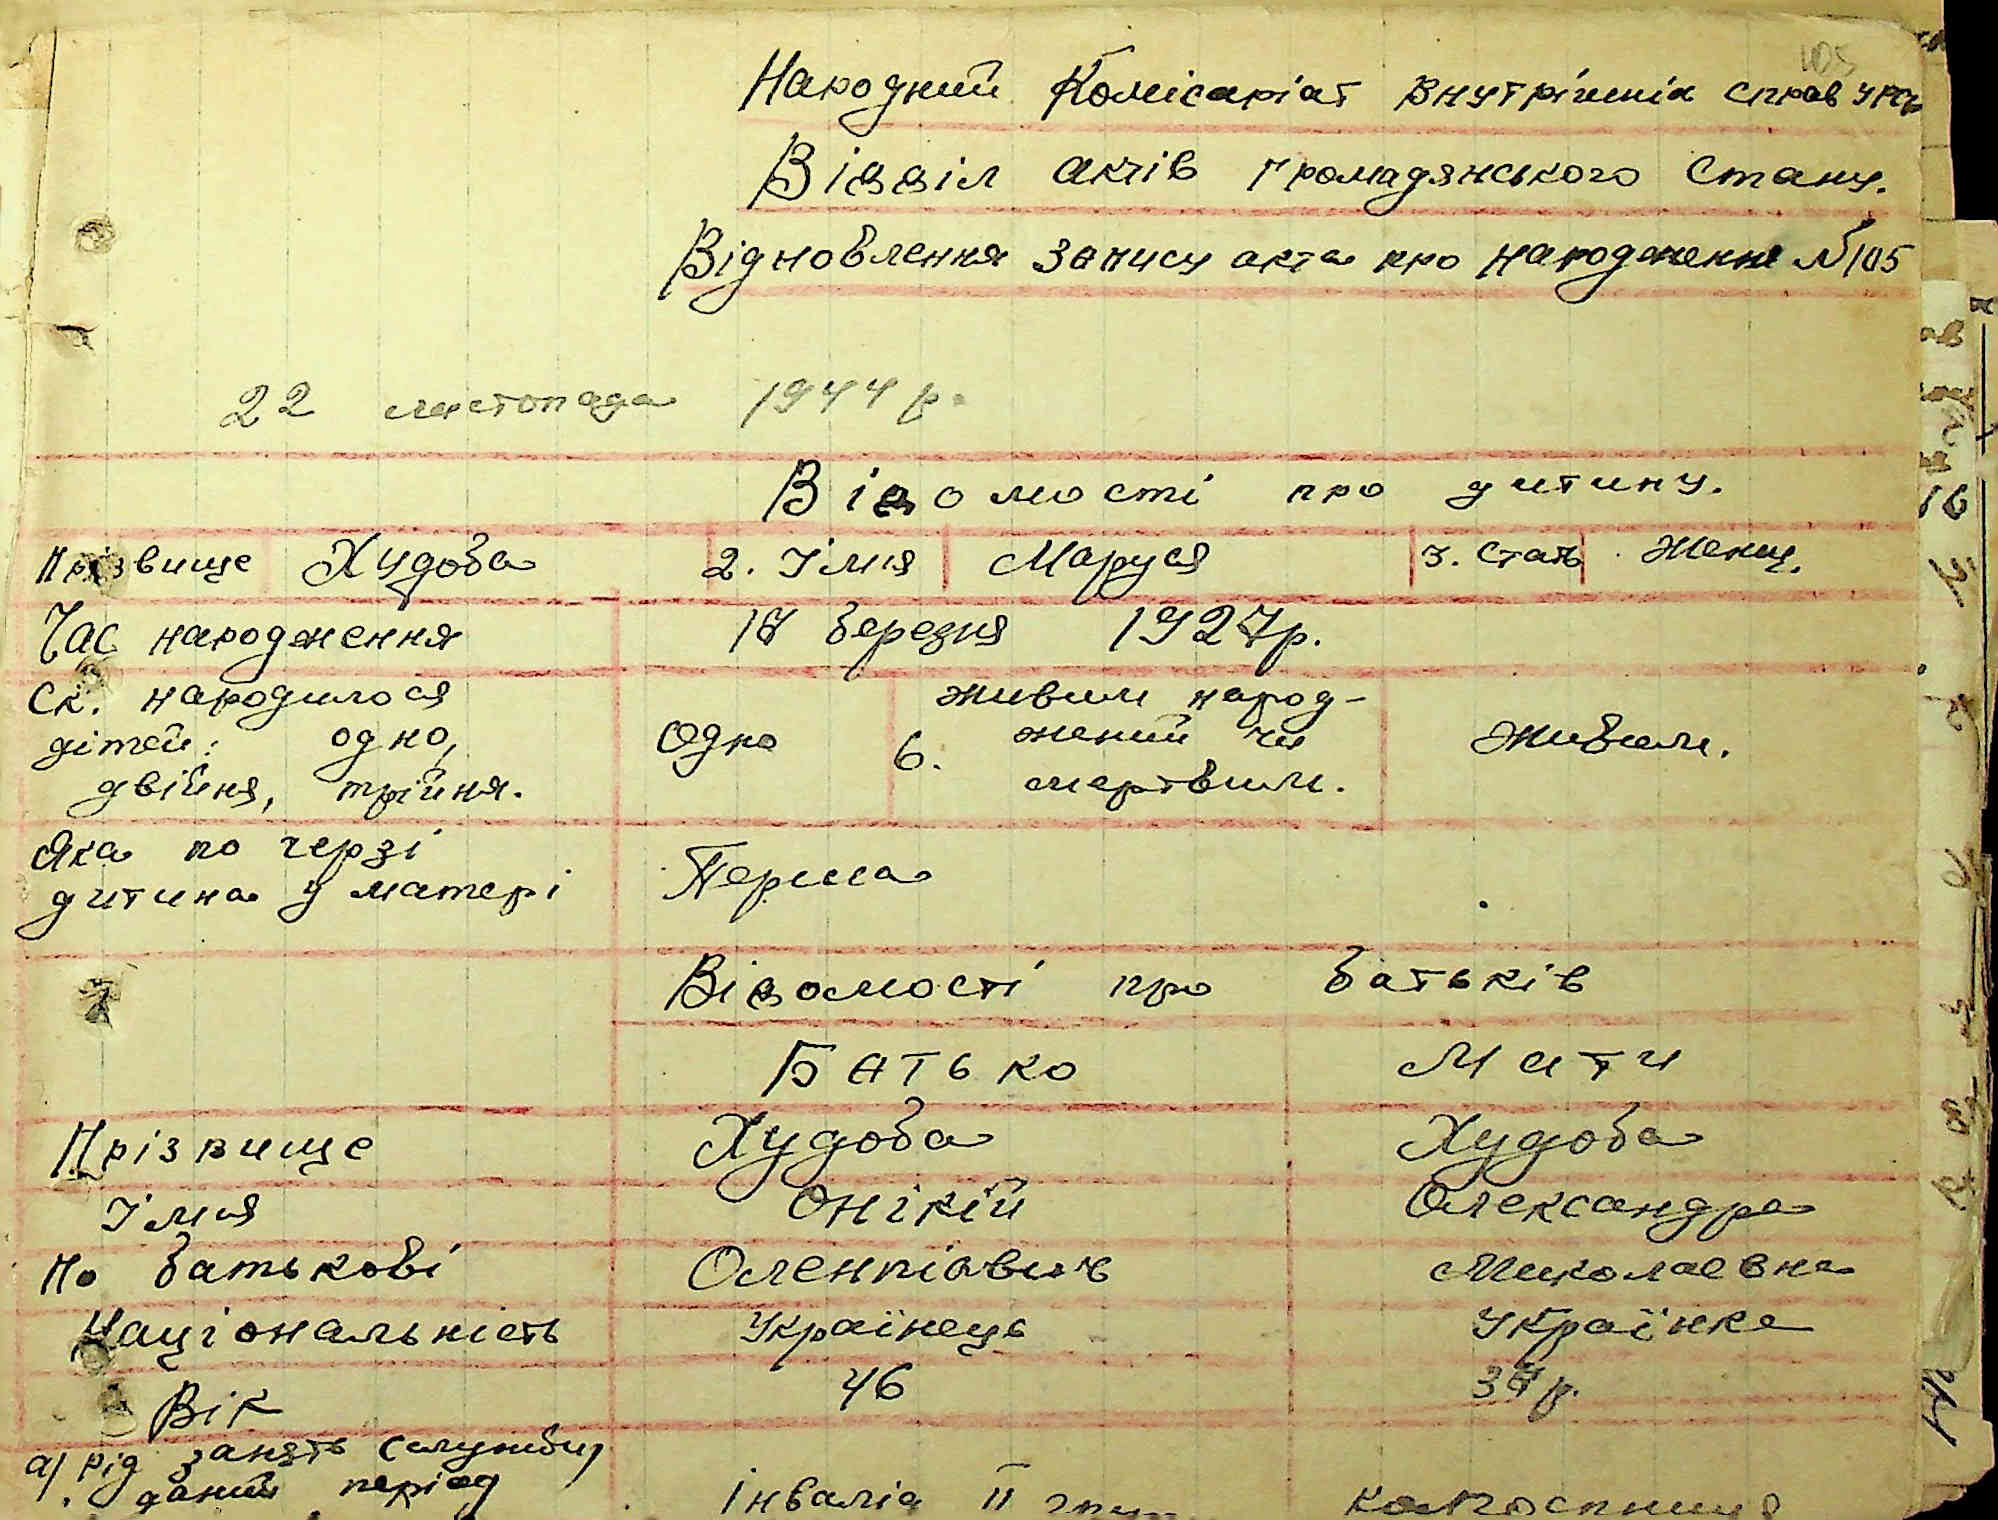 105
Народний Комісаріат Внутрішніх справ УРСР
Відділ актів громадянського стану.
Відновлення запису акта про народження №105
22 листопада 1944 р.
Відомості про дитину.
Прізвище Худоба 2. Імя Маруся 3. Стать Женщ.
Час народження 17 березня 1927р.
Ск. народилося дітей: одно, двійня, трійня. Одно 6. живим народжений чи мертвим. Живим.
Яка по черзі дитина у матері Перша
Відомості про батьків
Батько Мати
Прізвище Худоба Худоба
Імя Онікій Олександра
По батькові Оленпіович Миколаєвна
Національність Українець Українка
Вік 46 37 р.
а/ рід занять (служби)
даний період Інвалід II груп колгоспниця